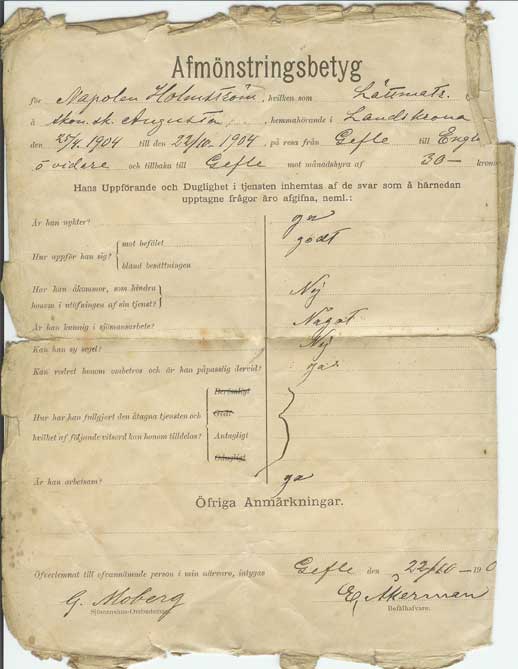 Afmönstringsbetyg
för Napolen Holmström, hvilken som Lättmatr.
å skon. sk. Augusta, hemmahörande i Landskrona
den 25/4 1904 till den 22/10 1904, på resa från Gefle till Engl.
o vidare och tillbaka till Gefle mot månadshyra af 30— kronor
Hans Uppförande och Duglighet i tjensten inhemtas af de svar som å härnedan
upptagne frågor äro afgifna, neml.:
Är han nykter? ja
Hur uppför han sig? mot befälet godt
bland besättningen
Har han åkommor, som hindra
honom i utöfningen af sin tjenst? Nej
Är han kunnig i sjömansarbete? Något
Kan han sy segel? Nej
Kan rodret honom ombetros och är han påpasslig dervid? ja
Berömligt
Hur har han fullgjort den åtagna tjensten och Godt
hvilket af följande vitsord kan honom tilldelas? Antagligt
Odugligt
Är han arbetsam? ja
Öfriga Anmärkningar.
Öfverlemnat till ofvannämnde person i min närvaro, intygas Gefle den 22/10 — 190
G. Moberg E. Åkerman
Sjömanshus-Ombudsman Befälhafvare.